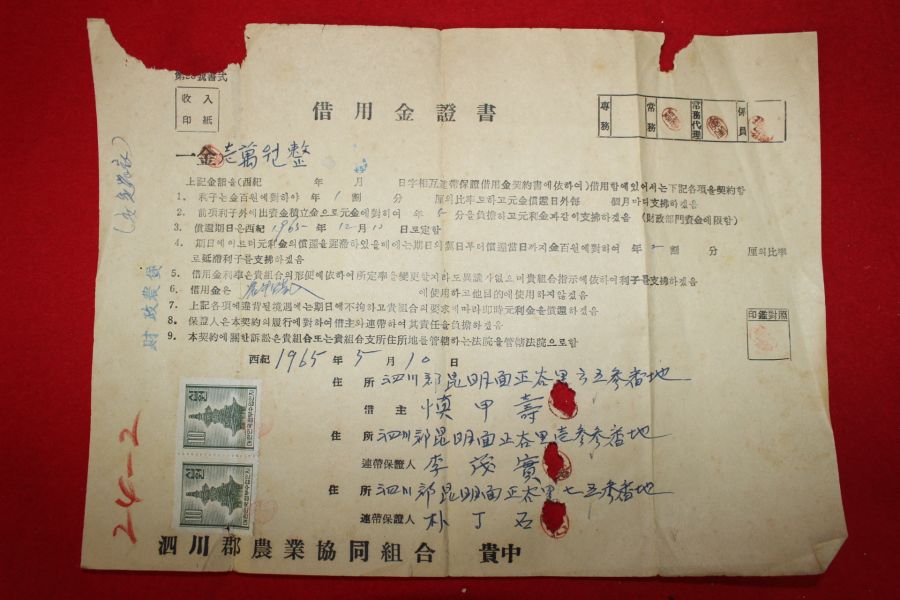 號書式
收入
印紙
借用金證書
專務
常務
常務代理
係員
一金壱萬원整
上記金額을(西紀 年 月 日字相互連帶保證借用金契約書에依하여)借用함에있어서는下記各項을契約함
1. 利子는金百원에對하야年 1 割 分 厘의比率로하고元金償還日外每 個月마다支拂하겠음
2. 前項利子外에出資金積立金으로元金에對하여 年 5 分을負擔하고元利金과같이支拂하겠음 (財政部門資金에限함)
3. 償還期日은西紀 1965 年 12 月 10 日로定함
4. 期日에이르러元利金의償還을遲滯하였을때에는期日의翌日부터償還當日까지金百원에對하여 年 2 割 分 厘의比率
로延滯利子를支拂하겠음
5. 借用金利率은貴組合의形便에依하여所定率을變更할지라도異議가없으며貴組合指示에依하여利子를支拂하겠음
6. 借用金은 에使用하고他目的에使用하지않겠음
7. 上記各項에違背된境遇에는期日에不拘하고貴組合의要求에따라即時元利金을償還하겠음
8. 保證人은本契約의履行에對하여借主와連帶하여其責任을負擔하겠음
9. 本契約에關한訴訟은貴組合또는貴組合支所住所地를管轄하는法院을管轄法院으로함
印鑑對照
西紀 1965 年 5 月 10 日
住所 泗川郡昆明面正谷里 五參番地
借主 愼甲壽
住所 泗川郡昆明面正谷里壱參參番地
連帶保證人 李茂實
住所 泗川郡昆明面正谷里七五參番地
連帶保證人 朴丁石
泗川郡農業協同組合 貴中
財政農資
24-2
10
10